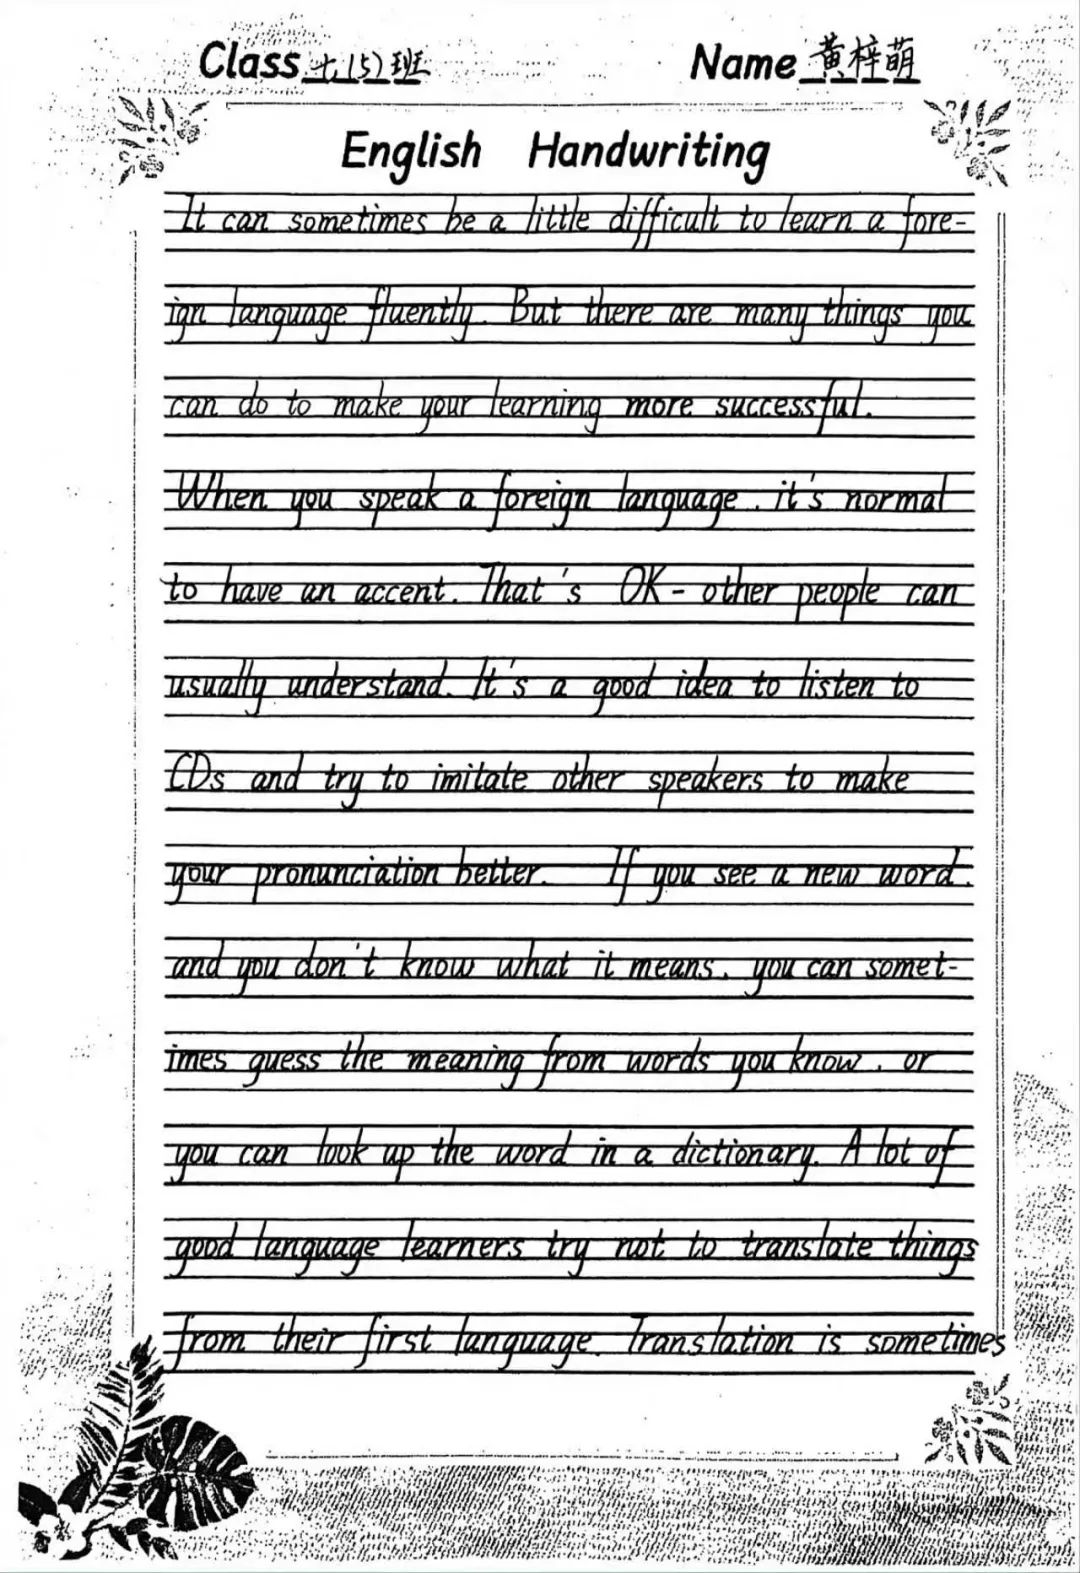 Class 七(5)班 Name 黄梓萌
English Handwriting
It can sometimes be a little difficult to learn a fore-
ign language fluently. But there are many things you
can do to make your learning more successful.
When you speak a foreign language, it's normal
to have an accent. That's OK - other people can
usually understand. It's a good idea to listen to
CDs and try to imitate other speakers to make
your pronunciation better. If you see a new word,
and you don't know what it means, you can somet-
imes guess the meaning from words you know, or
you can look up the word in a dictionary. A lot of
good language learners try not to translate things
from their first language. Translation is sometimes